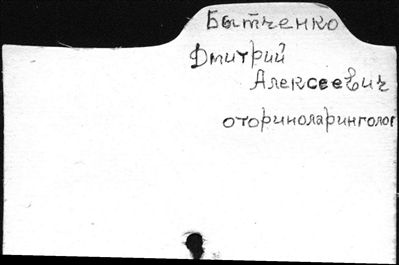 Бытченко
Дмитрий
Алексеевич
оториноларинголог